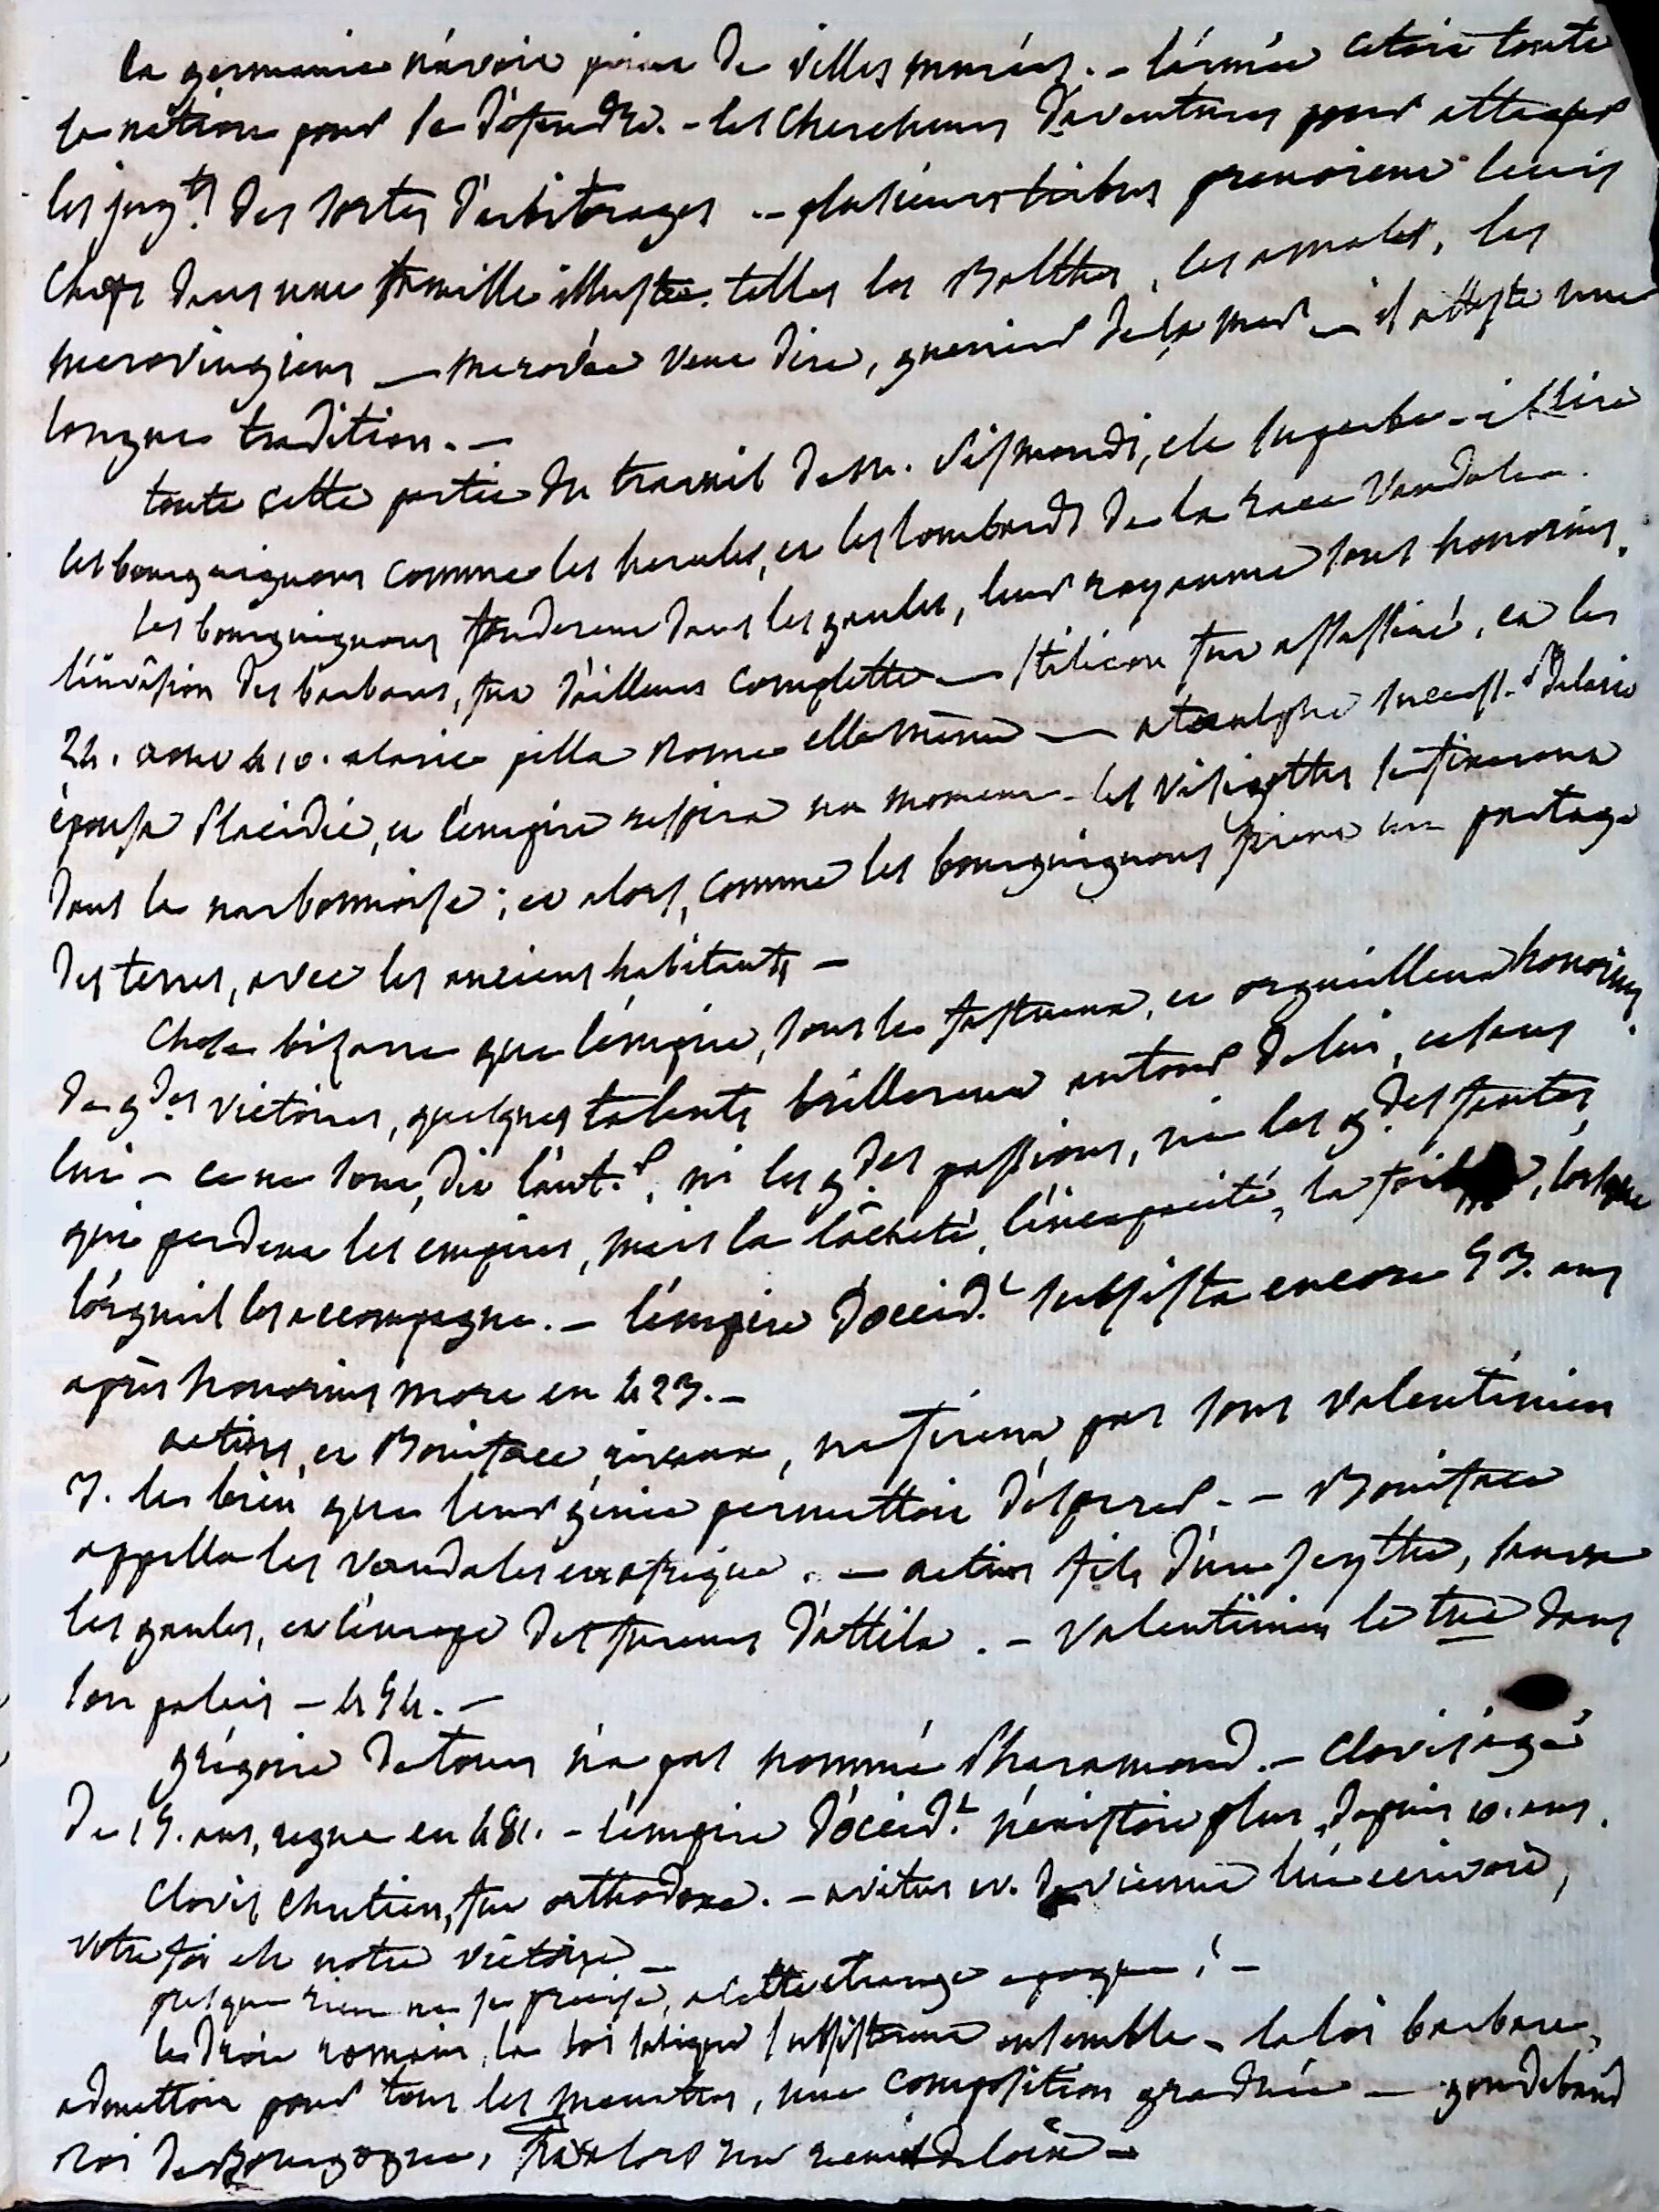 la germanie n'avoit point de villes murées. - l'armée étoit toute
la nation pour se défendre. - les chercheurs d'aventures pour attaquer
les jugts des sortes d'arbitrages - plusieurs tribus prenoient leurs
chefs dans une famille illustre. telles les Balthes, les amales, les
merovingiens — merovée veut dire, guerrier de la mer — il atteste une
longue tradition. -
toute cette partie du travail de m. Sismondi, est superbe - il tire
les bourguignons comme les herules, et les lombards de la race Vandale.
les bourguignons fonderent dans les gaules, leur royaume sous honorius.
l'invasion des barbares, fut d'ailleurs complette — Stilicon fut assassiné, et les
24. aout 410. alaric pilla Rome elle même — ataulphe success.r d'alaric
épousa Placidie, et l'empire respira un moment - les visigoths se fixerent
dans la narbonnoise ; et alors, comme les bourguignons firent un partage
des terres, avec les anciens habitants -
Chose bizarre que l'empire, sous le fastueux, et orgueilleux honorius,
de gdes victoires, quelques talents brillerent autour de lui, et sous
lui - ce ne sont, dit l'aut.r, ni les gdes passions, ni les gdes fautes,
qui perdent les empires, mais la lâcheté, l'incapacité, la lorsque
l'orgueil les accompagne. - l'empire d'occid.t subsista encore 53. ans
après honorius mort en 423. -
aetius, et Boniface rivaux, ne firent pas sous valentinien
3. le bien que leur génie permettoit d'espérer. - Boniface
appella les vandales en afrique. - aetius fils d'un scythe, sauva
les gaules, et l'europe des fureurs d'attila. - valentinien le tue dans
son palais - 454. -
grégoire de tours n'a pas nommé Pharamond. - Clovis agé
de 15. ans, regne en 481. - l'empire d'occid.t n'existoit plus, depuis 10. ans.
Clovis chretien, fut orthodoxe. - avitus ev. de vienne lui ecrivoit,
votre foi est notre victoire -
presque rien ne se precise, a cette etrange epoque ! -
le droit romain, la loi salique subsisterent ensemble - la loi barbare,
admettoit pour tous les meurtres, une composition graduée - gondebaud
roi de Bourgogne, fit alors un recueil de loix -